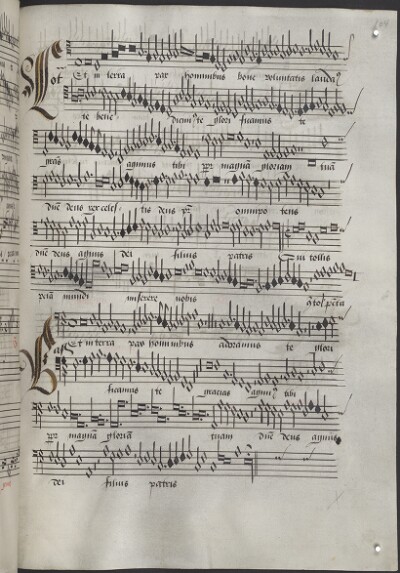 Et in terra pax hominibus bone voluntatis lauda
te bene dicim9 te glori ficamus te
gras agimus tibi ppr magnã gloriam tuã
dne deus rex celes tis deus pr omnipo tens
dne deus agnus dei filius patris Qui tollis
pctã mundi miserere nobis
Et in terra pax hominibus adoramus te glori
ficamus te gracias agim9 tibi
ppr magnã gloriã tuam dne deus agnus
dei filius patris